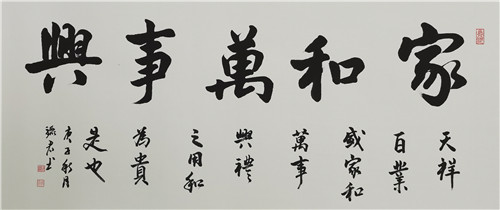 家和萬事興
天祥
百業
盛家和
萬事
興禮
之用和
為貴
是也
庚子秋月